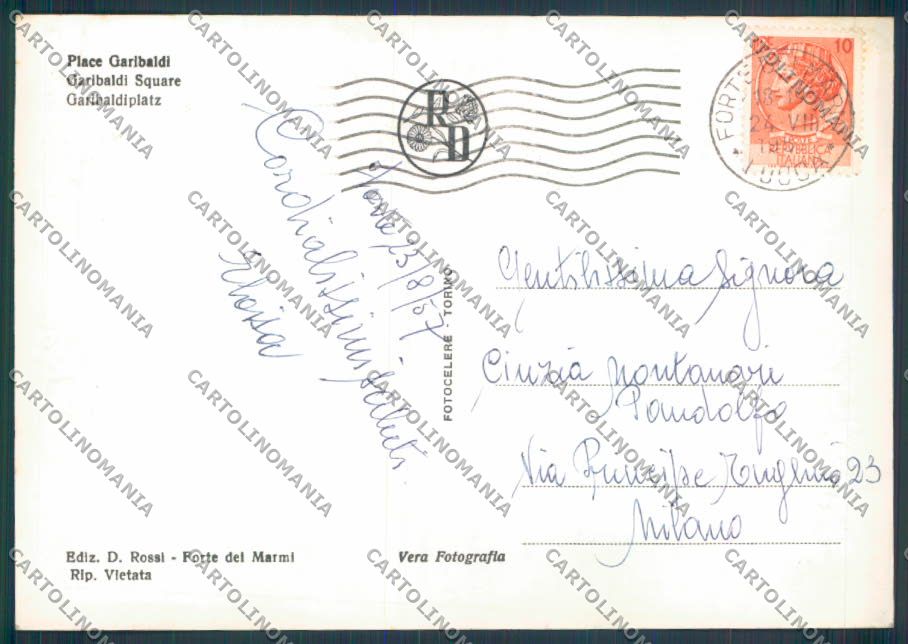 Place Garibaldi
Garibaldi Square
Garibaldiplatz
RD
10
24 VIII
REPUBBLICA
ITALIANA
LUCCA
23/8/57
Cordialissimi saluti
FOTOCELERE - TORINO
Gentilissima Signora
Cinzia Montanari
Pandolfo
Via Principe Eugenio 23
Milano
Ediz. D. Rossi - Forte dei Marmi
Rip. Vietata
Vera Fotografia
CARTOLINOMANIA